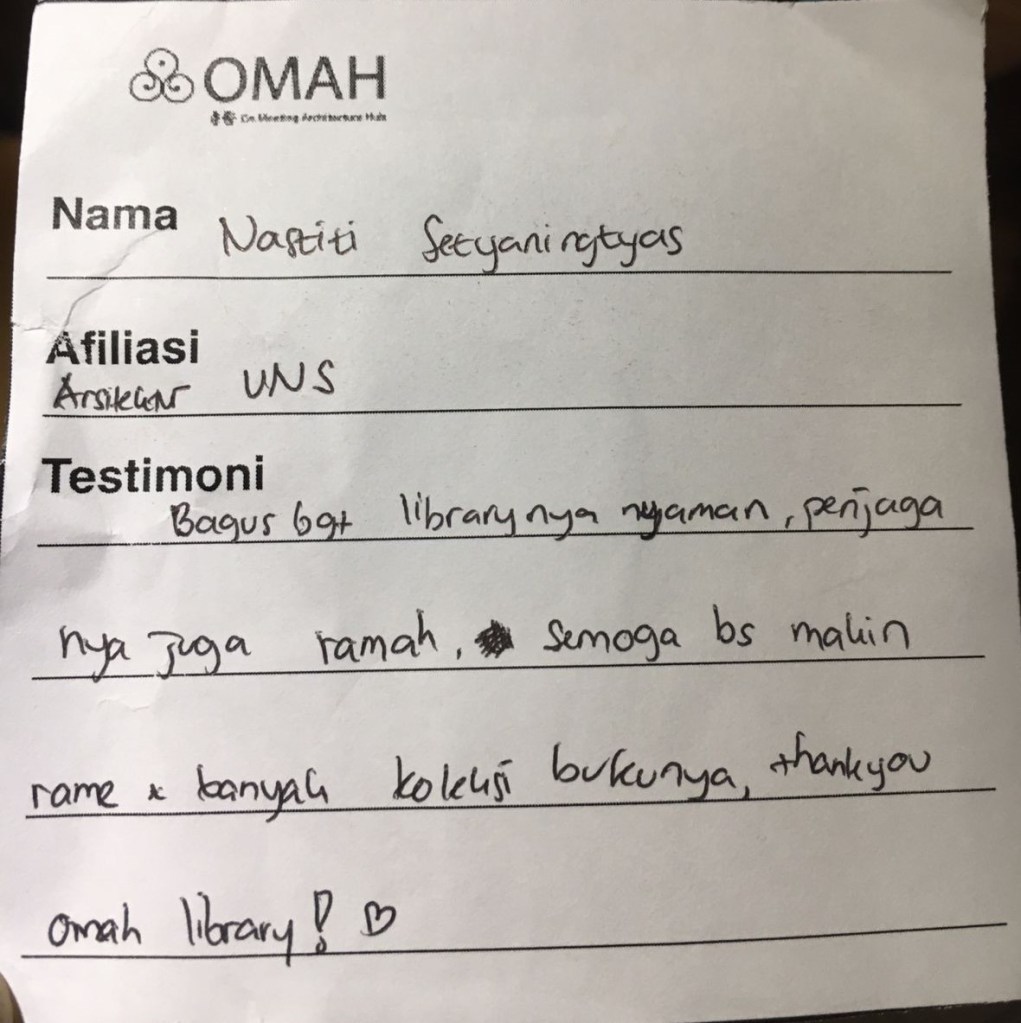 OMAH
On Meeting Architecture Hub
Nama Nastiti Setyaningtyas
Afiliasi
Arsitektur UNS
Testimoni
Bagus bgt librarynya nyaman, penjaga
nya juga ramah, semoga bs makin
rame & banyak koleksi bukunya, thankyou
omah library! ♡